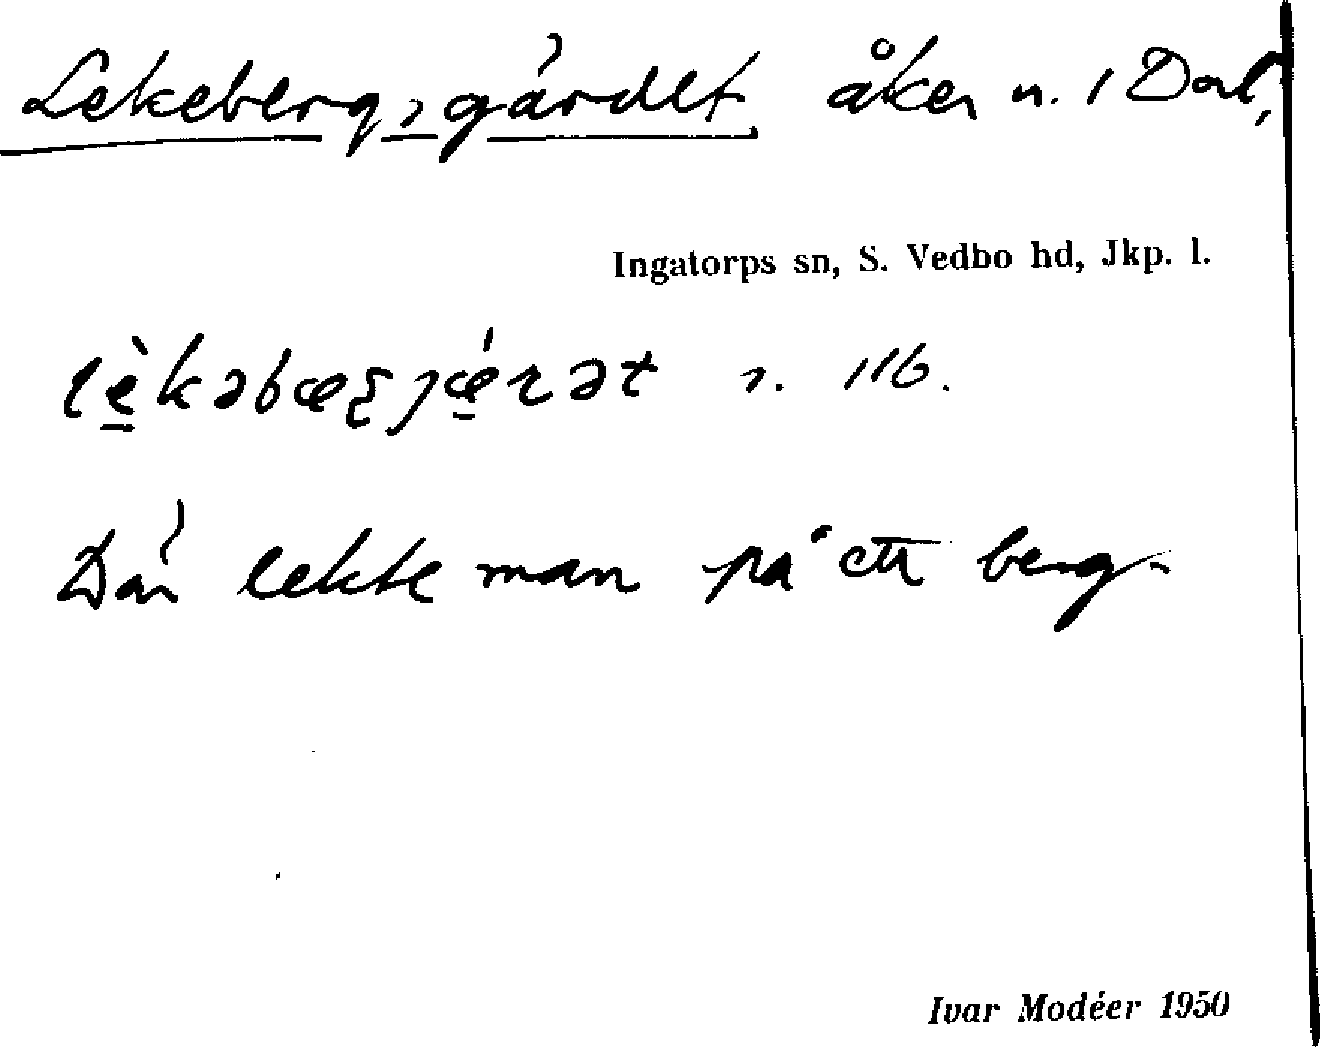 Lekebergsgärdet åker n. i Dal,
Ingatorps sn, S. Vedbo hd, Jkp. l.
lèkəbæʂjæ̀rət
Där lekte man på ett berg.
Ivar Modéer 1950